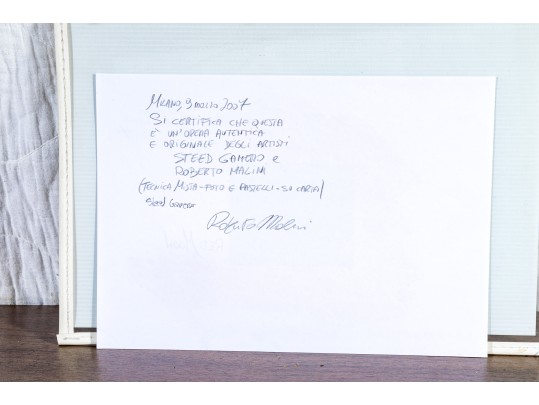 MILANO, 9 MARZO 2007
SI CERTIFICA CHE QUESTA
È UN'OPERA AUTENTICA
E ORIGINALE DEGLI ARTISTI
STEED GAMERO E
ROBERTO MALINI
(TECNICA MISTA - FOTO E PASTELLI - SU CARTA)
Steed Gamero
Roberto Malini